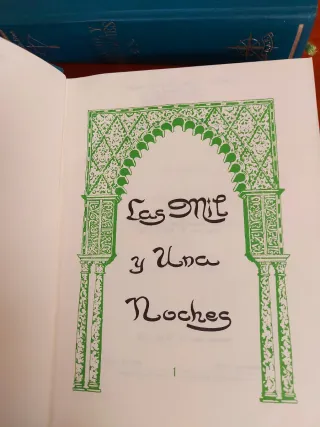 Las Mil
y Una
Noches
1